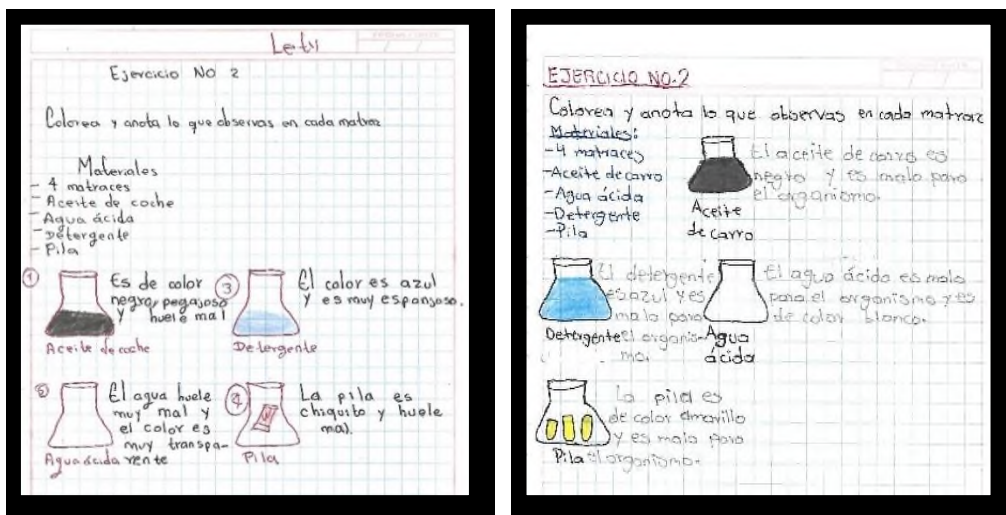 Lety
Ejercicio No 2
Colorea y anota lo que observas en cada matraz
Materiales
- 4 matraces
- Aceite de coche
- Agua ácida
- Detergente
- Pila
① Es de color
negro, pegajoso
y huele mal
Aceite de coche
③ El color es azul
y es muy espanjoso.
Detergente
② El agua huele
muy mal y
el color es
muy transpa-
rente
Agua ácida
④ La pila es
chiquito y huele
mal.
Pila
EJERCICIO NO.2
Colorea y anota lo que observas en cada matraz
Materiales:
-4 matraces
-Aceite de carro
-Agua ácida
-Detergente
-Pila
El aceite de carro es
negro y es malo para
el organismo.
Aceite
de carro
El detergente
es azul y es
malo para
el organis-
mo.
Detergente
El agua ácida es mala
para el organismo y es
de color blanco.
Agua
ácida
La pila es
de color amarillo
y es malo para
el organismo.
Pila